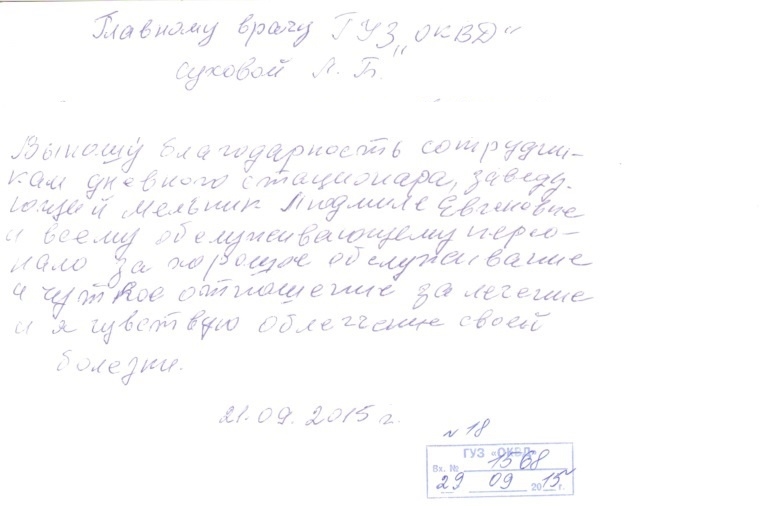 Главному врачу ГУЗ „ОКВД“
Суховой Л. Б.
Выношу благодарность сотрудни-
кам дневного стационара, заведу-
ющей Мельник Людмиле Евгеновне
и всему обслуживающему персо-
нало за хорошое обслуживание
и чуткое отношение за лечение
и я чувствую облегчение своей
болезни.
21.09.2015 г.
N 18
ГУЗ «ОКВД»
Вх. № 1568
29 09 2015 г.